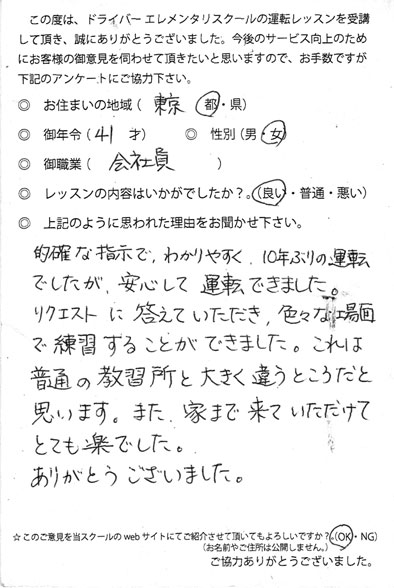 この度は、ドライバー エレメンタリスクールの運転レッスンを受講
して頂き、誠にありがとうございました。今後のサービス向上のため
にお客様の御意見を伺わせて頂きたいと思いますので、お手数ですが
下記のアンケートにご協力下さい。
◎ お住まいの地域（ 東京 都・県）
◎ 御年令（ 41 才） ◎ 性別（男・女）
◎ 御職業（ 会社員 ）
◎ レッスンの内容はいかがでしたか？。（良い・普通・悪い）
◎ 上記のように思われた理由をお聞かせ下さい。
的確な指示で、わかりやすく、10年ぶりの運転
でしたが、安心して運転できました。
リクエストに答えていただき、色々な場面
で練習することができました。これは
普通の教習所と大きく違うところだと
思います。また、家まで来ていただけて
とても楽でした。
ありがとうございました。
☆このご意見を当スクールの web サイトにてご紹介させて頂いてもよろしいですか？。（OK・NG）
（お名前やご住所は公開しません。）
ご協力ありがとうございました。